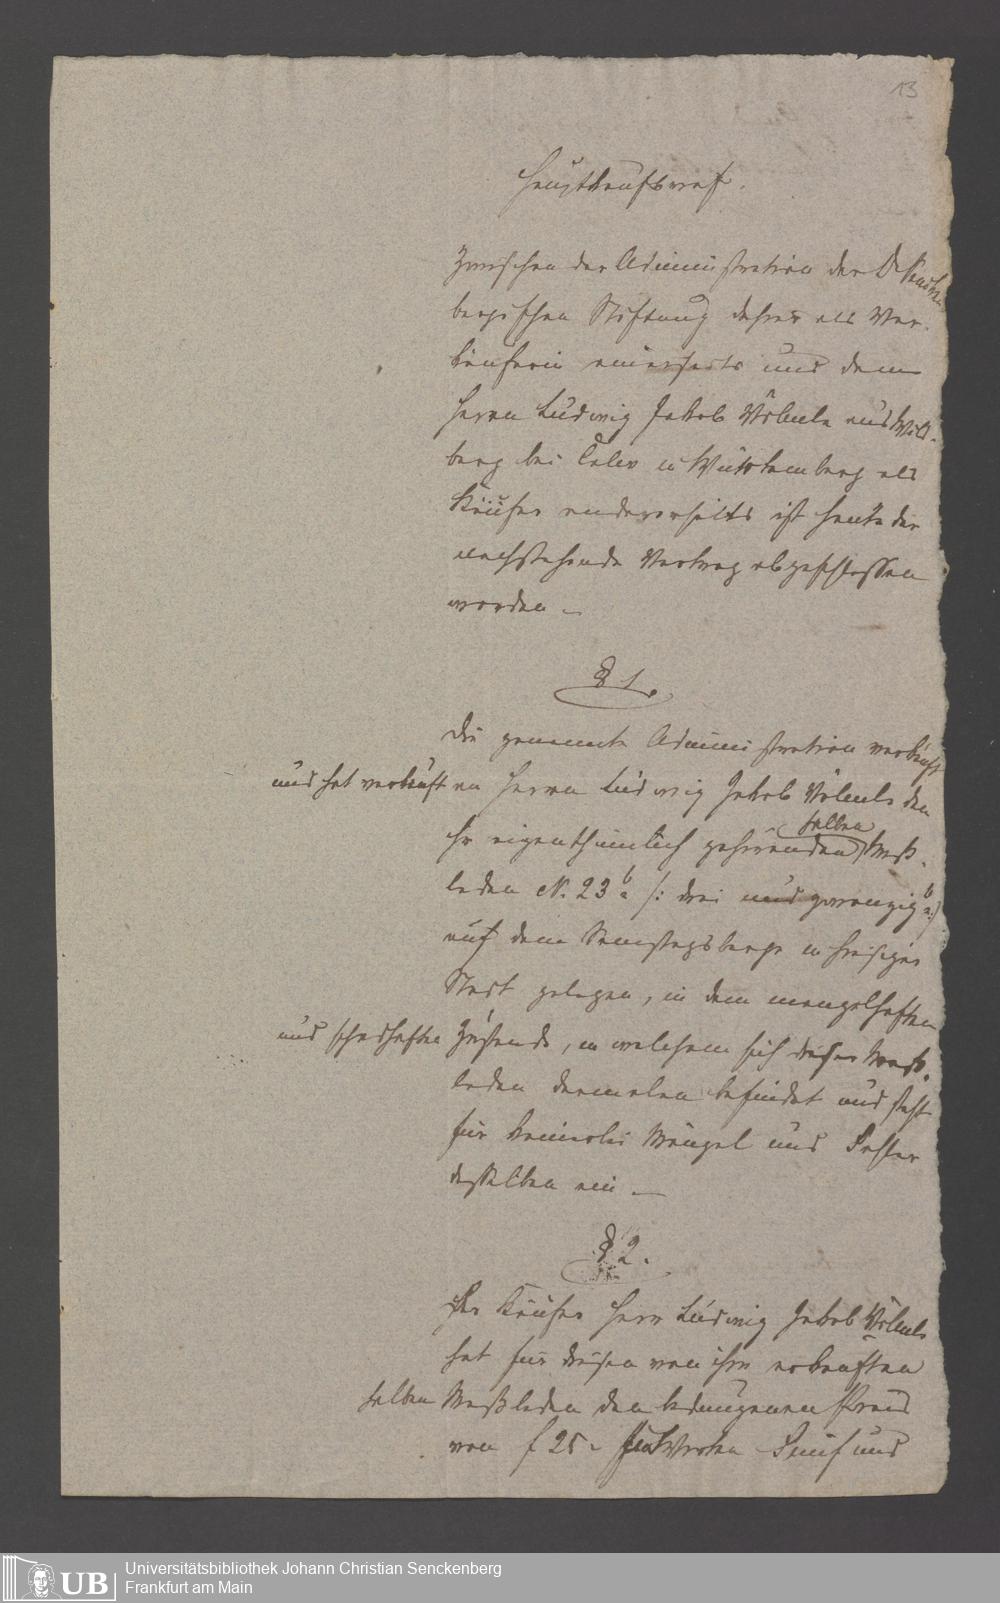 13
Hauptkaufbrief.
Zwischen der Administration der Dr Sencken
bergischen Stiftung dahier als Ver-
käuferin einerseits und dem
Herrn Ludwig Jakob Völmle aus Wild-
berg bei Calw in Württemberg als
Käufer andererseits ist heute der
nachstehende Vertrag abgeschlossen
worden –
§ 1.
Die genannte Administration verkauft
und hat verkauft an Herrn Ludwig Jakob Völmle den
halben
ihr eigenthümlich gehörenden Meß-
laden N. 23 b /: drei und zwanzig b :/
auf dem Samstagsberge in hiesiger
Stadt gelegen, in dem mangelhaften
und schadhaften Zustande, in welchem sich dieser Meß-
laden dermalen befindet und steht
für keinerlei Mängel und Fehler
desselben ein –
§ 2.
Der Käufer Herr Ludwig Jakob Völmle
hat für diesen von ihm erkauften
halben Meßladen den bedungenen Preis
von f 25 – Worten Fünf und
Universitätsbibliothek Johann Christian Senckenberg
Frankfurt am Main
UB